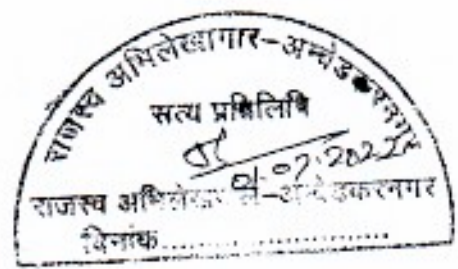 राजस्व अभिलेखागार-अम्बेडकरनगर
सत्य प्रतिलिपि
राजस्व अभिलेखागार-अम्बेडकरनगर
दिनांक....................